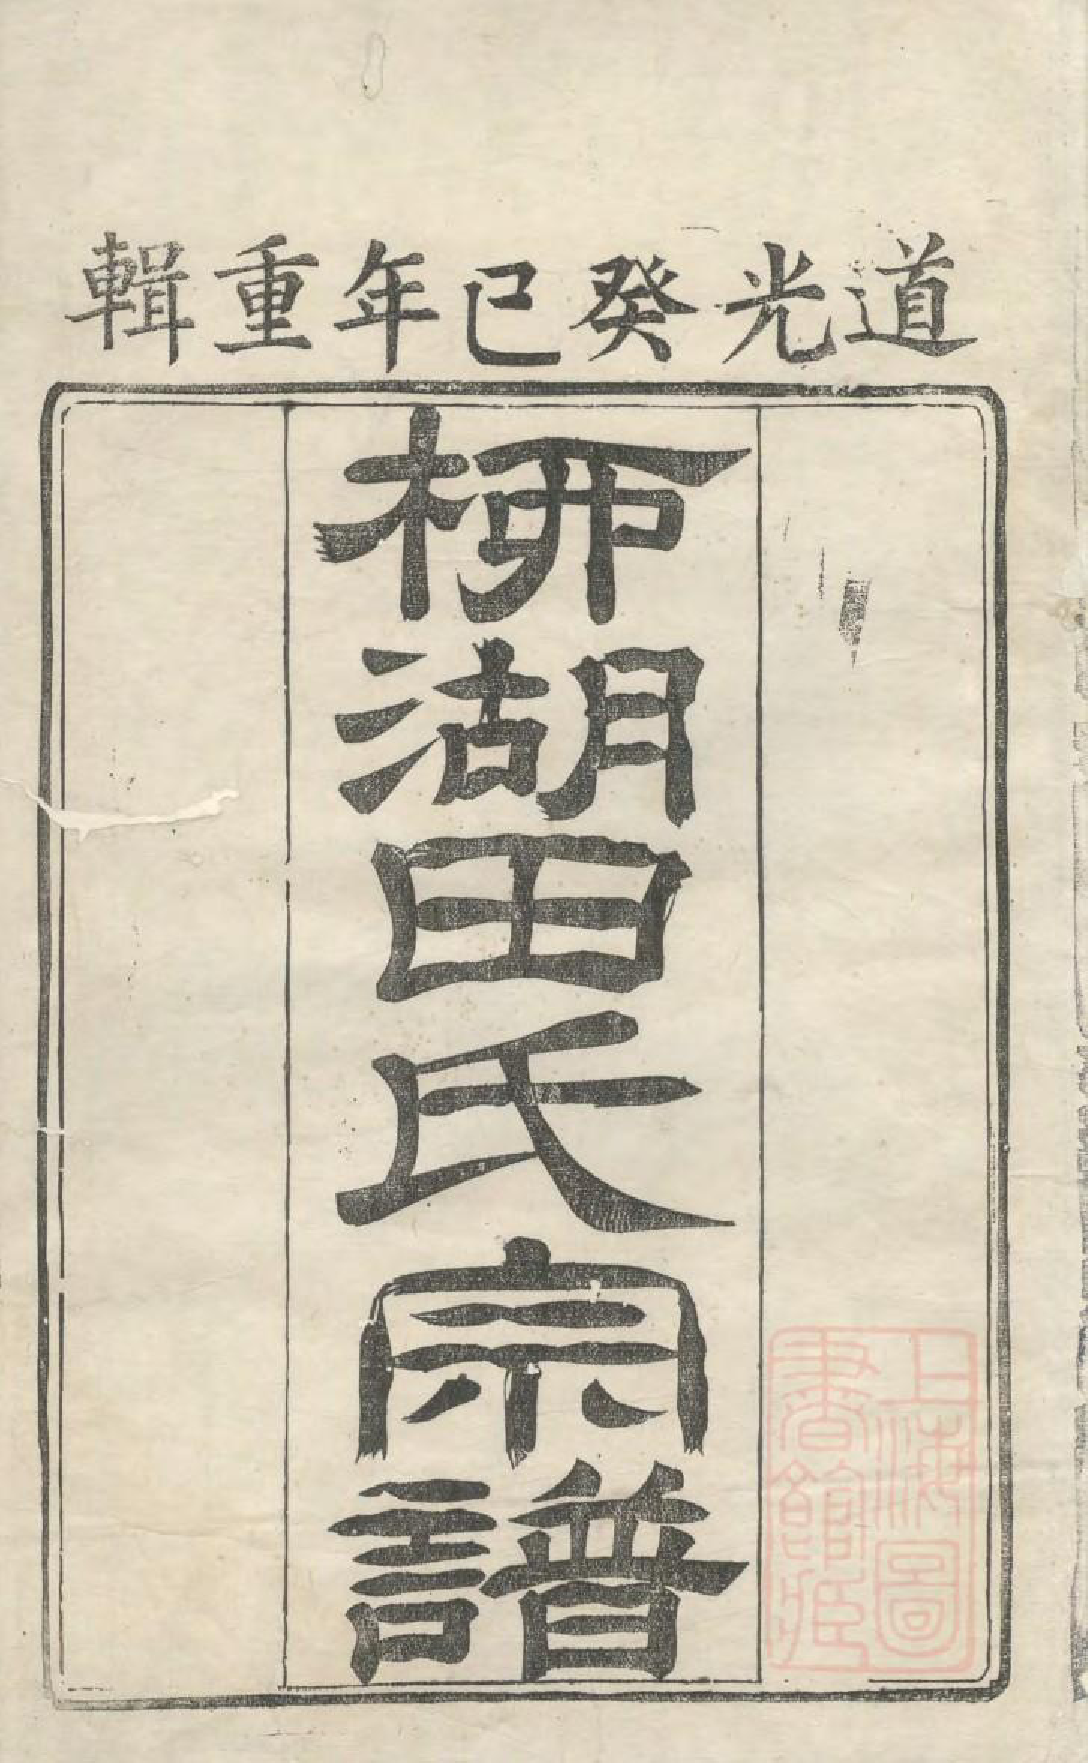 道光癸巳年重輯
柳湖田氏宗譜
上海圖
書館藏